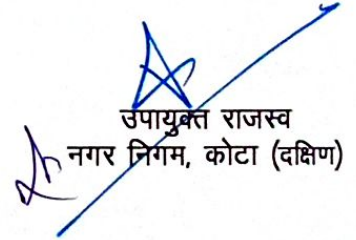 उपायुक्त राजस्व
नगर निगम, कोटा (दक्षिण)